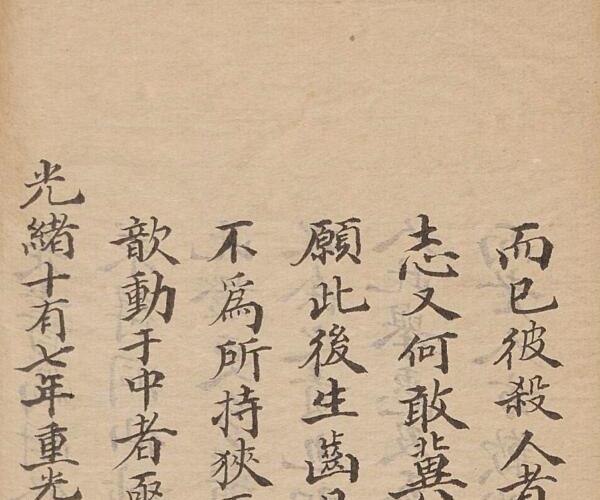 而已彼殺人者
志又何敢冀
願此後生齒
不為所持狹
歆動于中者
光緒十有七年重光